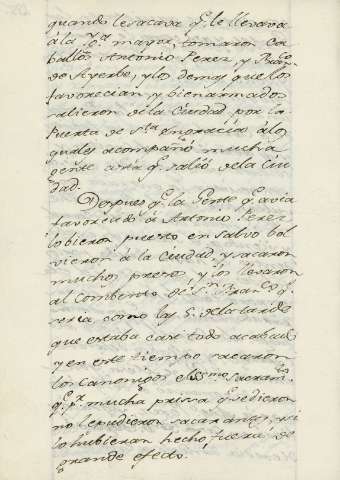 quando le sacava q.e le llevava
à la Yg.a mayor, tomaron ca
ballos Antonio Perez, y Fran.co
de Ayerbe, y los demas que los
favorecian, y bien armados
salieron de la Ciudad por la
Puerta de S.ta Engracia à los
quales acompañó mucha
gente asta q.e salió de la Ciu
dad.
Despues q.e la Gente q.e avia
favorecido à Antonio Perez
lo bieron puesto en salvo bol
vieron à la Ciudad, y sacaron
muchos presos y los llevaron
al Combento de S.n Fran.co q.e
seria como las 5. de la tarde
que estaba casi todo acabado
y en este tiempo sacaron
los Canonigos el SS.mo Sacram.to
q.e p.r mucha prissa q.e se dieron
no le pudieron sacar antes, y si
lo hubieran hecho, fuera de
grande efecto.